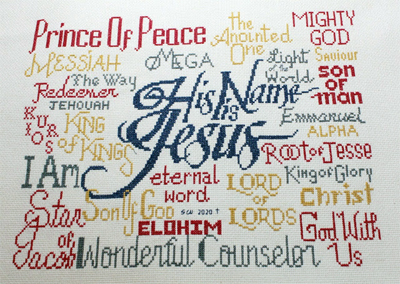 Prince Of Peace
the
Anointed
One
MIGHTY
GOD
MESSIAH
OMEGA
Light of
the
World
Saviour
The Way
Redeemer
JEHOVAH
His Name
is
Jesus
son of
man
KURIOS
KING
of
KINGS
Emmanuel
ALPHA
Root of Jesse
I Am
eternal
word
LORD
of
LORDS
King of Glory
Christ
Son Of God
SW 2020
ELOHIM
Star
of
Jacob
Wonderful Counselor
God With
Us